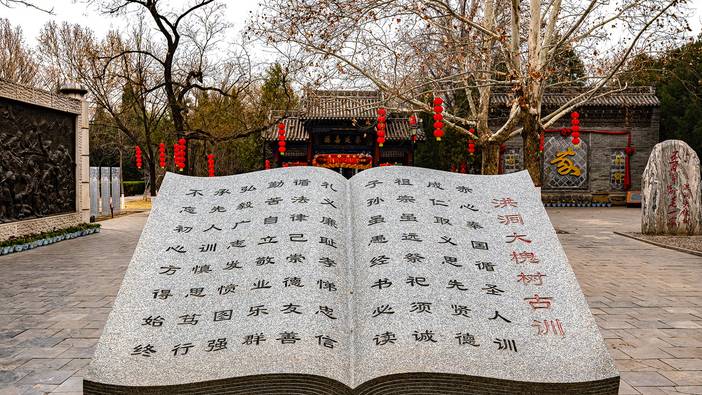 洪洞大槐树古训
赤心奉国循圣人训
成仁取义思先贤德
祖宗虽远祭祀须诚
子孙虽愚经书必读
礼义廉耻孝悌忠信
循法律己崇德友善
勤苦自立敬业乐群
弘毅志发愤图强
承先人训慎思笃行
不忘初心方得始终